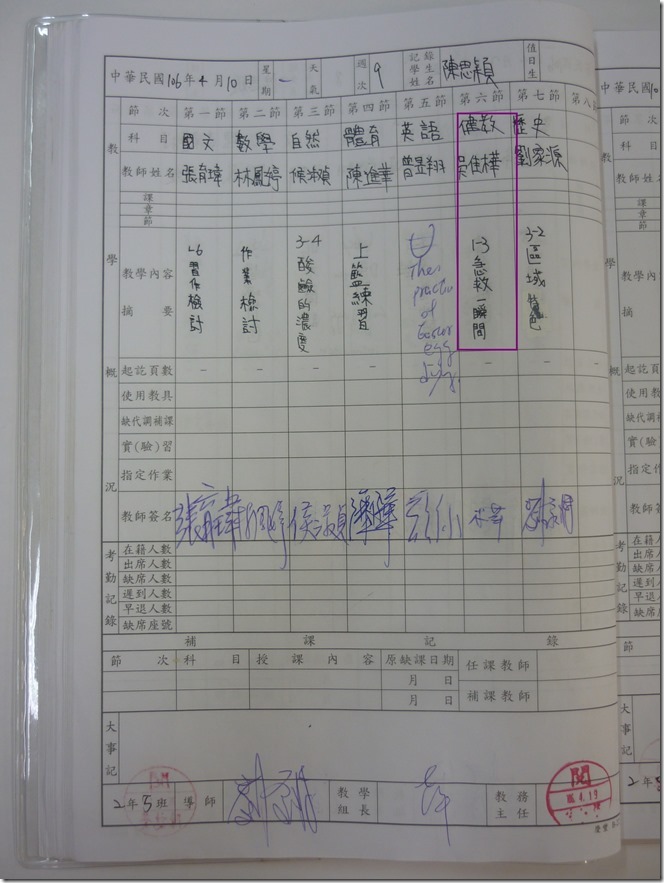 中華民國106年4月10日 星期 一 天氣 週次 9 記錄學生姓名 陳思穎 值日生
節次 第一節 第二節 第三節 第四節 第五節 第六節 第七節 第八
科目 國文 數學 自然 體育 英語 健教 歷史
教師姓名 張育瑋 林鳳婷 陳進華 曾昱翔 吳佳樺 劉家源
課章節
教學內容摘要 1-6習作檢討 作業檢討 3-4酸鹼的濃度 上籃練習 The practice of Easter egg 1-3急救一瞬間 3-2區域特色
教學概況
起訖頁數 – – – – – – –
使用教具
缺代調補課
實(驗)習
指定作業
教師簽名
考勤記錄
在籍人數
出席人數
缺席人數
遲到人數
早退人數
缺席座號
補課記錄
節次 科目 授課內容 原缺課日期 任課教師
月 日
月 日 補課教師
大事記
2年5班 導師 教學組長 教務主任 閱
中華民國10
節
科
教師姓
教學內
摘
起訖頁
使用教
缺代調補
實(驗)
指定作
教師簽
在籍人
出席人
缺席人
遲到人
早退人
缺席座
節
2年